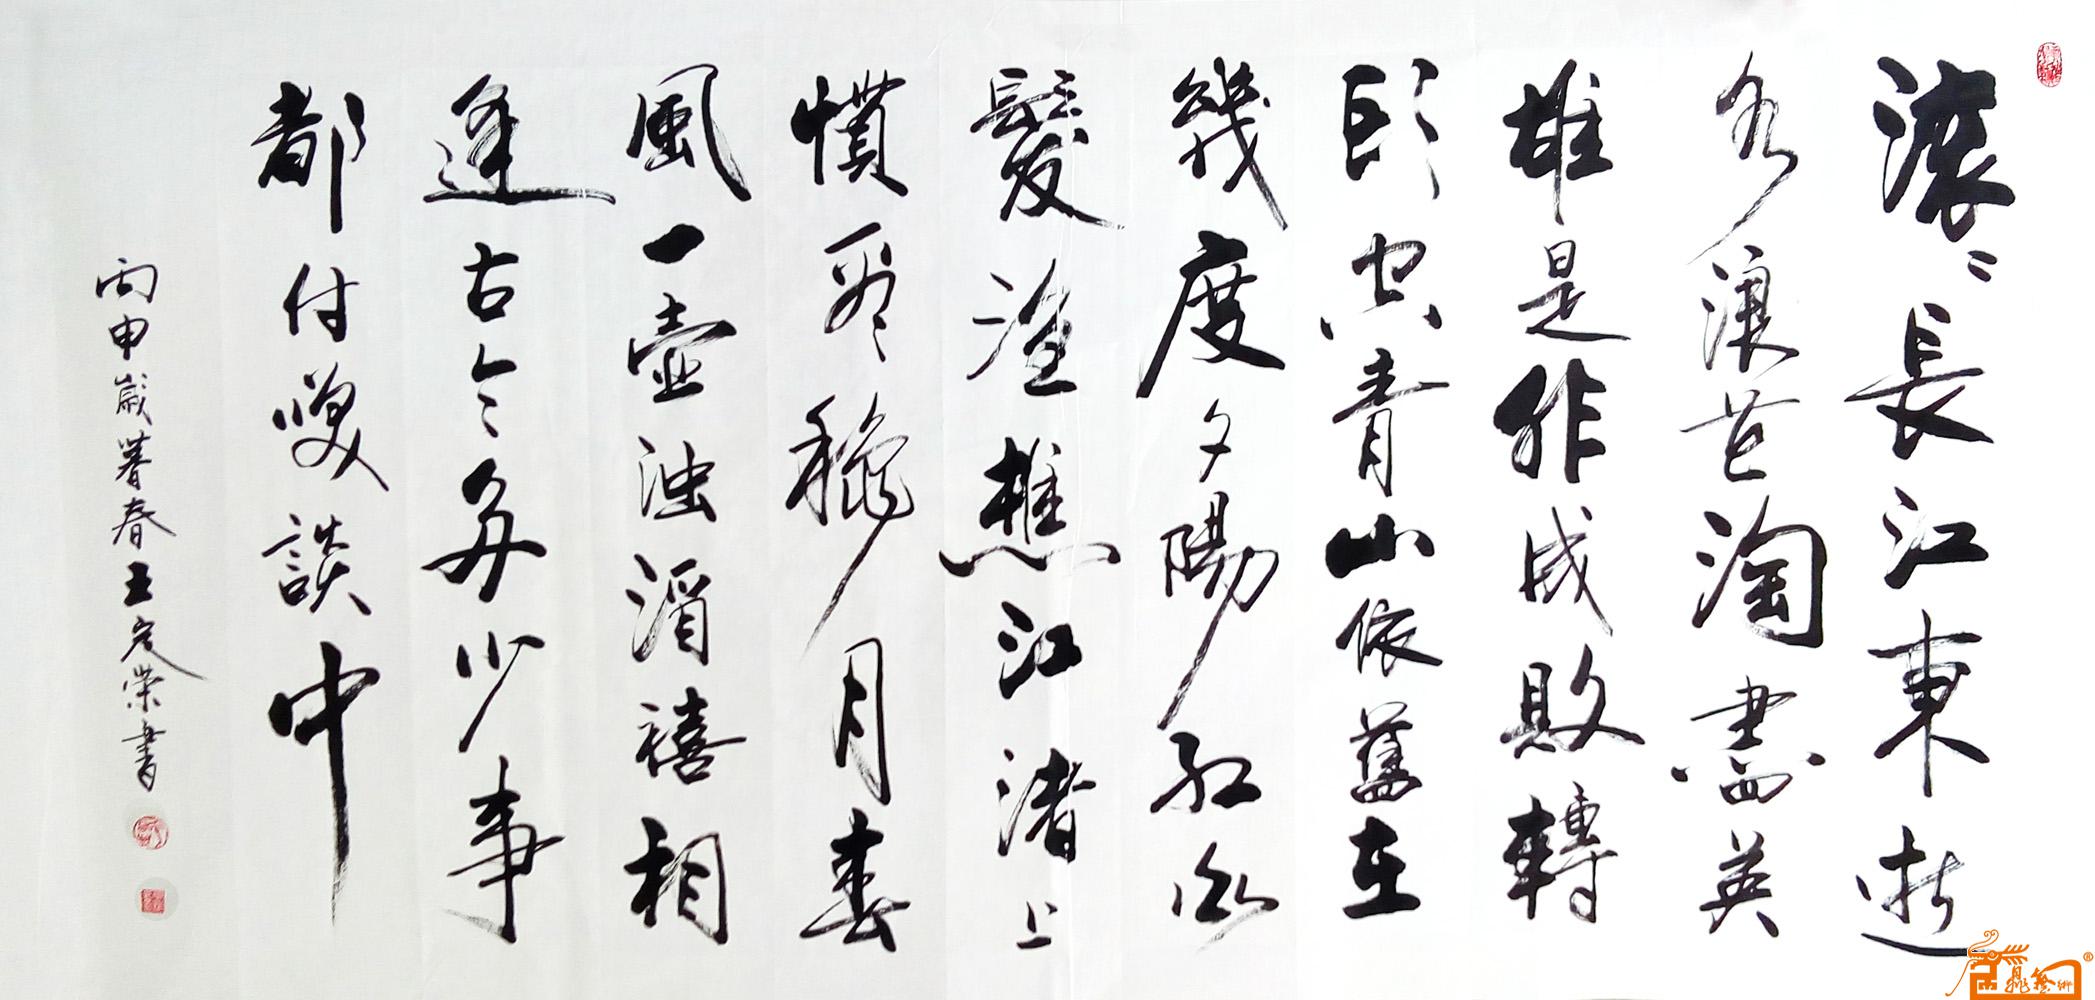 滚〻長江東逝
水浪花淘盡英
雄是非成敗轉
頭空青山依舊在
幾度夕陽紅白
髮漁樵江渚上
慣看龝月春
風一壺浊酒禧相
逢古今多少事
都付咲談中
丙申歲暮春王定榮書